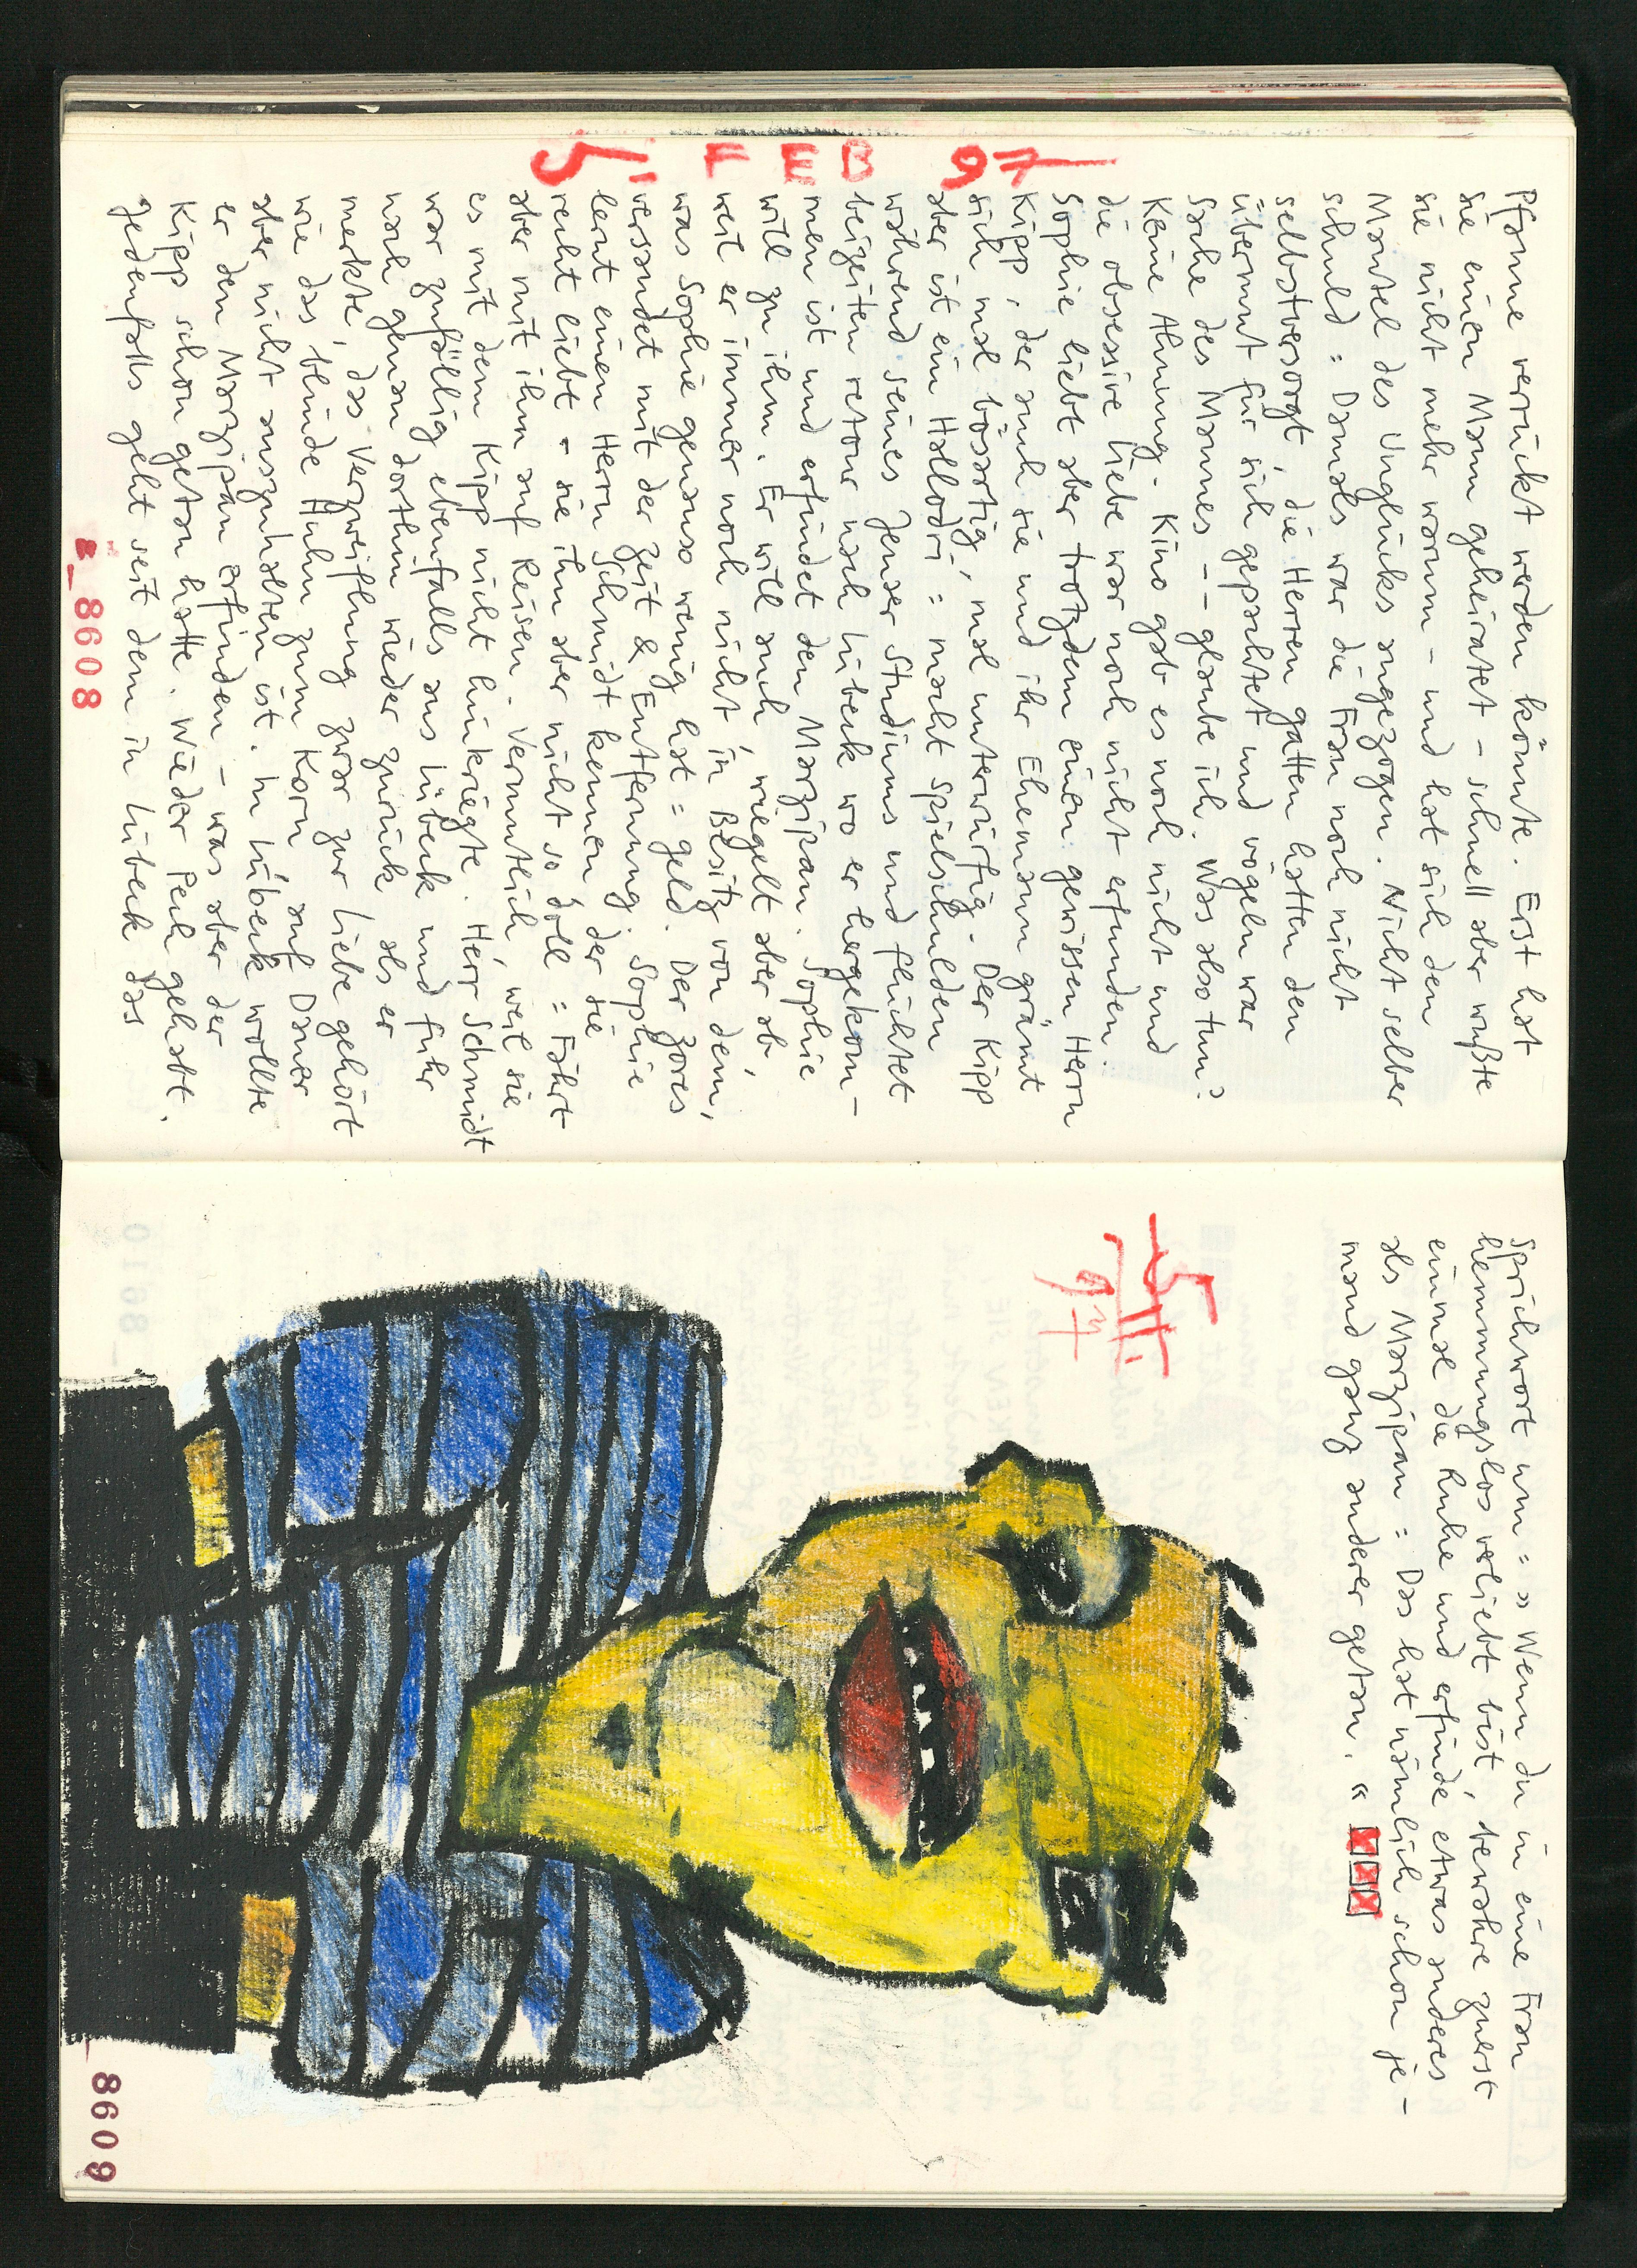 5. FEB 97
Pfanne verrückt werden könnte. Erst hat
sie einen Mann geheiratet – schnell aber wußte
sie nicht mehr warum – und hat sich den
Mantel des Unglücks angezogen. Nicht selber
schuld : Damals war die Frau noch nicht
selbstversorgt, die Herren Gatten hatten den
übernnt für sich gepachtet und vögeln war
Sache des Mannes -- glaube ich. Was also tun?
Keine Ahnung. Kino gab es noch nicht und
die obsessive Liebe war noch nicht erfunden.
Sophie liebt aber trotzdem einen gewissen Herrn
Kipp, der auch sie und ihr Ehemann grämt
sich mal bösartig, mal unterwürfig. Der Kipp
aber ist ein Hallodri = macht Spielschulden
während seines Jenaer Studiums und flüchtet
beizeiten retour nach Lübeck wo er hergekom–
men ist und erfindet den Marzipan. Sophie
will zu ihm. Er will auch, wiegelt aber ab,
weil er immer noch nicht in Besitz von dem,
was Sophie genauso wenig hat = Geld. Der Zores
versandet mit der Zeit & Entfernung. Sophie
lernt einen Herrn Schmidt kennen der sie
recht liebt – sie ihn aber nicht so doll = Fährt
aber mit ihm auf Reisen. Vermutlich, weil sie
es mit dem Kipp nicht hinkriegte. Herr Schmidt
war zufällig ebenfalls aus Lübeck und fuhr
nach genau dorthin wieder zurück als er
merkte, das Verzweiflung zwar zur Liebe gehört
wie das blinde Huhn zum Korn auf Dauer
aber nicht auszuhalten ist. In Lübeck wollte
er den Marzipan erfinden – was aber der
Kipp schon getan hatte. Wieder Pech gehabt.
Jedenfalls geht seit dem in Lübeck das
8608
Sprichwort um = » Wenn du in eine Frau
hemmungslos verliebt bist, bewahre zuerst
einmal die Ruhe und erfinde etwas anderes
als Marzipan : Das hat nämlich schon je–
mand ganz anderer getan. «
5.II.
97
8609